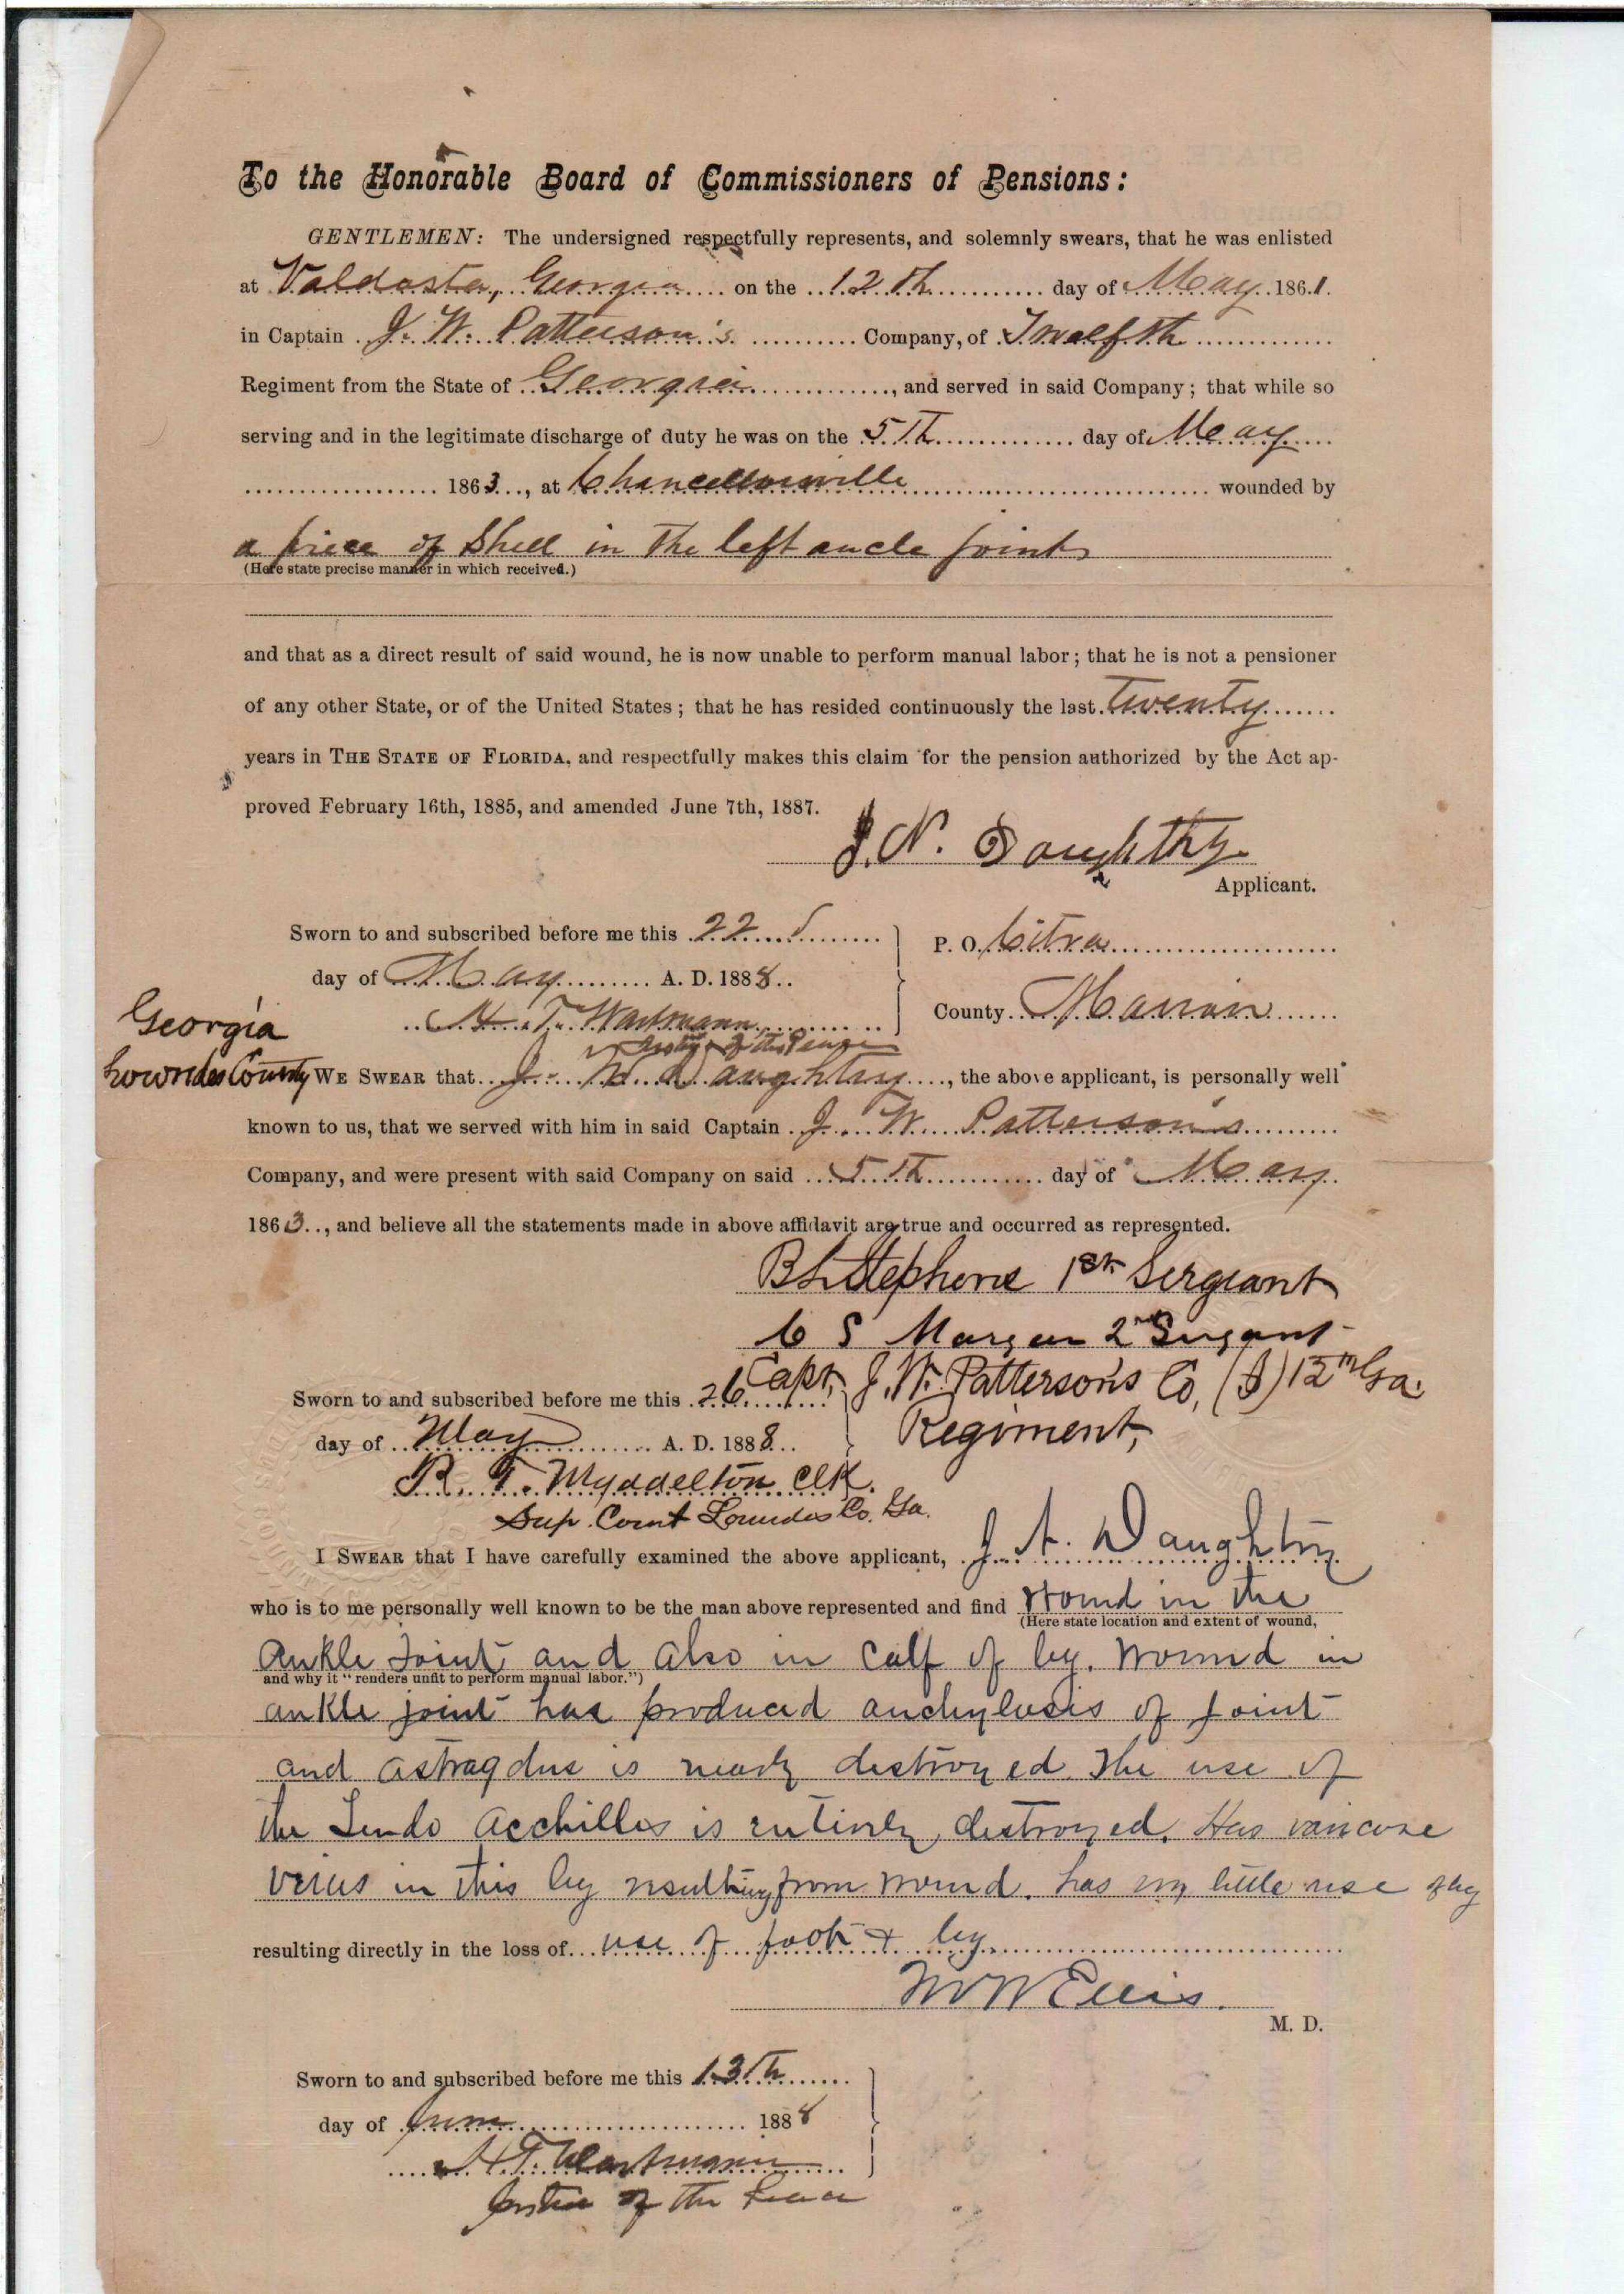 To the Honorable Board of Commissioners of Pensions:
GENTLEMEN: The undersigned respectfully represents, and solemnly swears, that he was enlisted
at Valdosta, Georgia on the 12th day of May 1861.
in Captain J. W. Patterson's Company, of Twelfth
Regiment from the State of Georgia, and served in said Company; that while so
serving and in the legitimate discharge of duty he was on the 5th day of May
1863, at Chancellorsville wounded by
a piece of Shell in the left ancle joint
(Here state precise manner in which received.)
and that as a direct result of said wound, he is now unable to perform manual labor; that he is not a pensioner
of any other State, or of the United States; that he has resided continuously the last twenty
years in THE STATE OF FLORIDA, and respectfully makes this claim for the pension authorized by the Act ap-
proved February 16th, 1885, and amended June 7th, 1887.
J. N. Doughthy
Applicant.
Sworn to and subscribed before me this 22d
P. O. Citra
day of May A. D. 1888
County Marion
H. T. Wartmann
Justice of the Peace
Georgia
Lowndes County
WE SWEAR that J. N. Daughtry, the above applicant, is personally well
known to us, that we served with him in said Captain J. W. Patterson's
Company, and were present with said Company on said 5th day of May
1863, and believe all the statements made in above affidavit are true and occurred as represented.
B L Stephens 1st Sergeant
C S Morgan 2nd Sergant
Capt. J. W. Patterson's Co, 12th Ga.
Regiment,
Sworn to and subscribed before me this 26
day of May A. D. 1888
R. T. Myddelton Clk.
Sup. Court Lowndes Co. Ga.
I SWEAR that I have carefully examined the above applicant, J. N. Daughtry
who is to me personally well known to be the man above represented and find Wound in the
(Here state location and extent of wound,
Ankle Joint and also in Calf of leg. Wound in
and why it "renders unfit to perform manual labor.")
ankle joint has produced anchylosis of joint
and astragalus is nearly destroyed. The use of
the Tendo Acchilles is entirely destroyed. Has varicose
veins in this leg resulting from wound. has very little use of leg
resulting directly in the loss of use of foot & leg
W W Ellis.
M. D.
Sworn to and subscribed before me this 13th
day of June 1888
H. T. Wartmann
Justice of the Peace